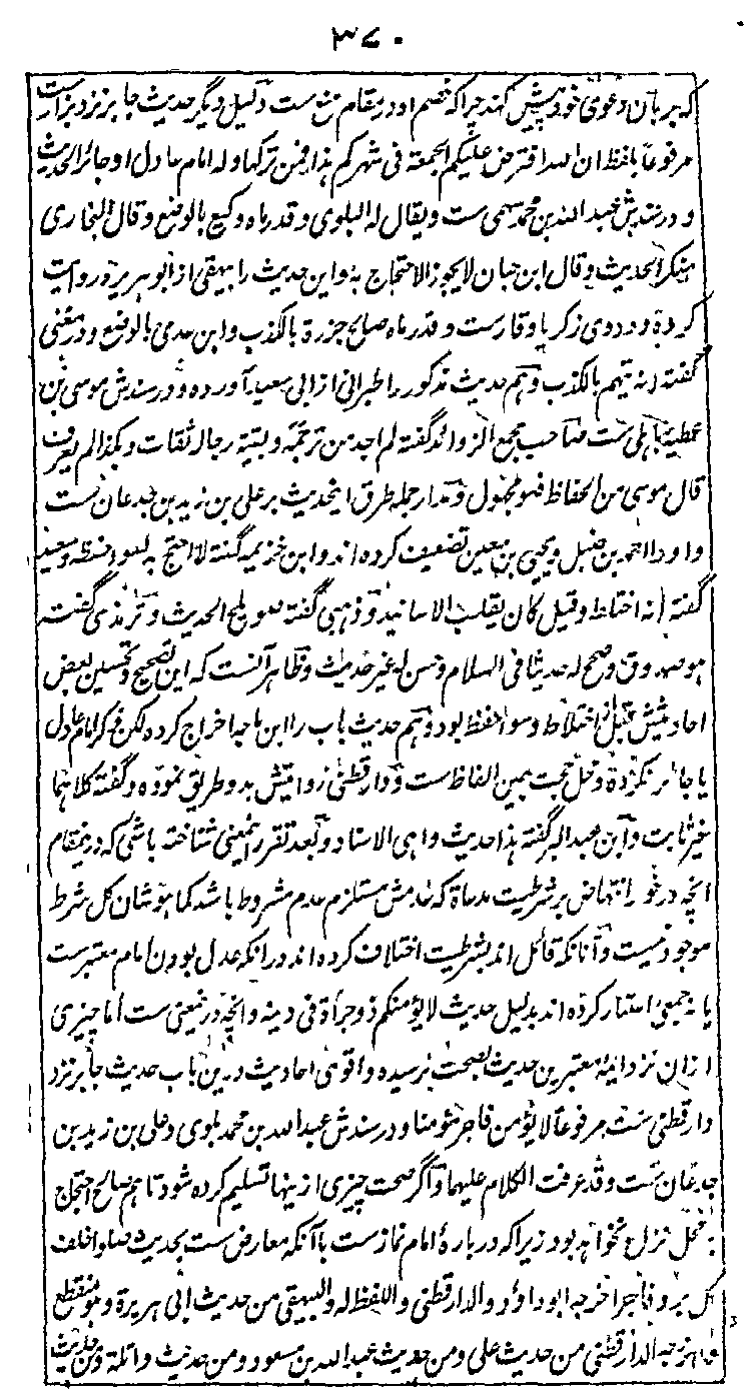 ۳۷۰
که بر بان دعوی خود پیش کند چرا که خصم او در مقام منع ست دلیل دیگر حدیث جابر نزد بزارست
مرفوعاً بلفظ ان الله افترض علیکم الجمعة فی شهرکم هذا فمن ترکها وله امام عادل او جائر الحدیث
و در سندش عبد الله بن محمد سهمی ست و یقال له البلوی وقد رماه وکیع بالوضع وقال البخاری
منکر الحدیث وقال ابن حبان لا یجوز الاحتجاج به و این حدیث را بیهقی از ابو هریره روایت
کرده و در وی زکریا وقار ست وقد رماه صالح جزرة بالکذب وابن عدی بالوضع و در مغنی
گفته انه یتهم بالکذب و هم حدیث مذکور را طبرانی از ابی سعید آورده و در سندش موسی بن
عطیه باهلی ست صاحب مجمع الزوائد گفته لم اجد من ترجمه وبقیة رجاله ثقات وهکذا لم یعرف
قال موسی من الحفاظ فهو مجهول و مدار جمله طرق اینحدیث بر علی بن زید بن جدعان ست
و او را احمد بن حنبل و یحیی بن معین تضعیف کرده اند و ابن خزیمه گفته لا احتج به لسوء حفظه و سعید
گفته انه اختلط وقیل کان یقلب الاسانید و ذهبی گفته صویلح الحدیث و ترمذی گفته
هو صدوق وصحح له حدیثا فی السلام وحسن له غیر حدیث و ظاهر آنست که این تصحیح و تحسین بعض
احادیثش قبل اختلاط و سوء حفظ بود و هم حدیث باب را ابن ماجه اخراج کرده لکن ذکر امام عادل
یا جائر نکرده و محل حجت همین الفاظ ست و دارقطنی روایتش بدو طریق نموده و گفته کلاهما
غیر ثابت و ابن عبد البر گفته هذا حدیث واهی الاسناد و بعد تقرر اینمعنی شناخته باشی که درینمقام
آنچه در خور انتهاض بر شرطیت مدعاة که عدمش مستلزم عدم مشروط باشد کما هو شان کل شرط
موجود نیست و آنانکه قائل اند بشرطیت اختلاف کرده اند در آنکه عدل بودن امام معتبر ست
یا نه جمعی اعتبار کرده اند بدلیل حدیث لا یؤمنکم ذو جرأة فی دینه و آنچه در نمعنی ست اما چیزی
ازان نزد ائمه معتبرین حدیث بصحت نرسیده و اقوی احادیث درین باب حدیث جابر نزد
دارقطنی ست مرفوعاً لا یؤمن فاجر مؤمنا و در سندش عبد الله بن محمد بلوی و علی بن زید بن
جدعان ست وقد عرفت الکلام علیهما و اگر صحت چیزی ازینها تسلیم کرده شود تا هم صالح احتجاج
بمحل نزاع نخواهد بود زیرا که در بارهٔ امام نماز ست با آنکه معارض ست بحدیث صلوا خلف
کل بر وفاجر اخرجه ابو داود والدارقطنی واللفظ له والبیهقی من حدیث ابی هریرة وهو منقطع
واخرجه الدارقطنی من حدیث علی ومن حدیث عبد الله بن مسعود ومن حدیث واثلة ومن حدیث